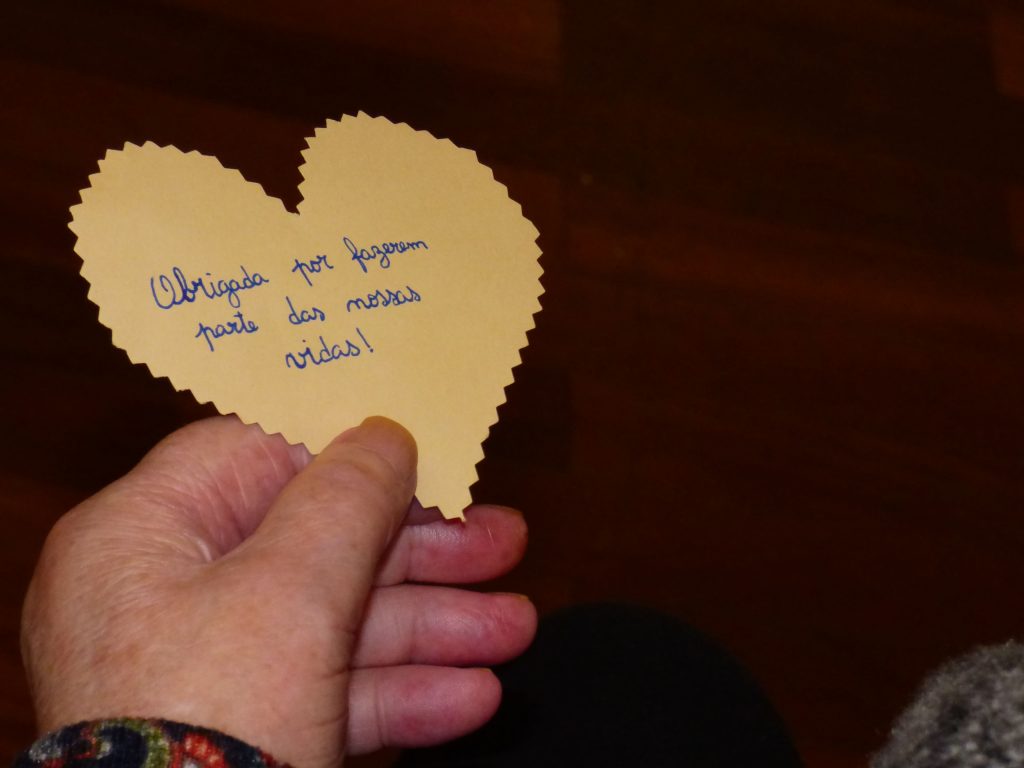 Obrigada por fazerem
parte das nossas
vidas!